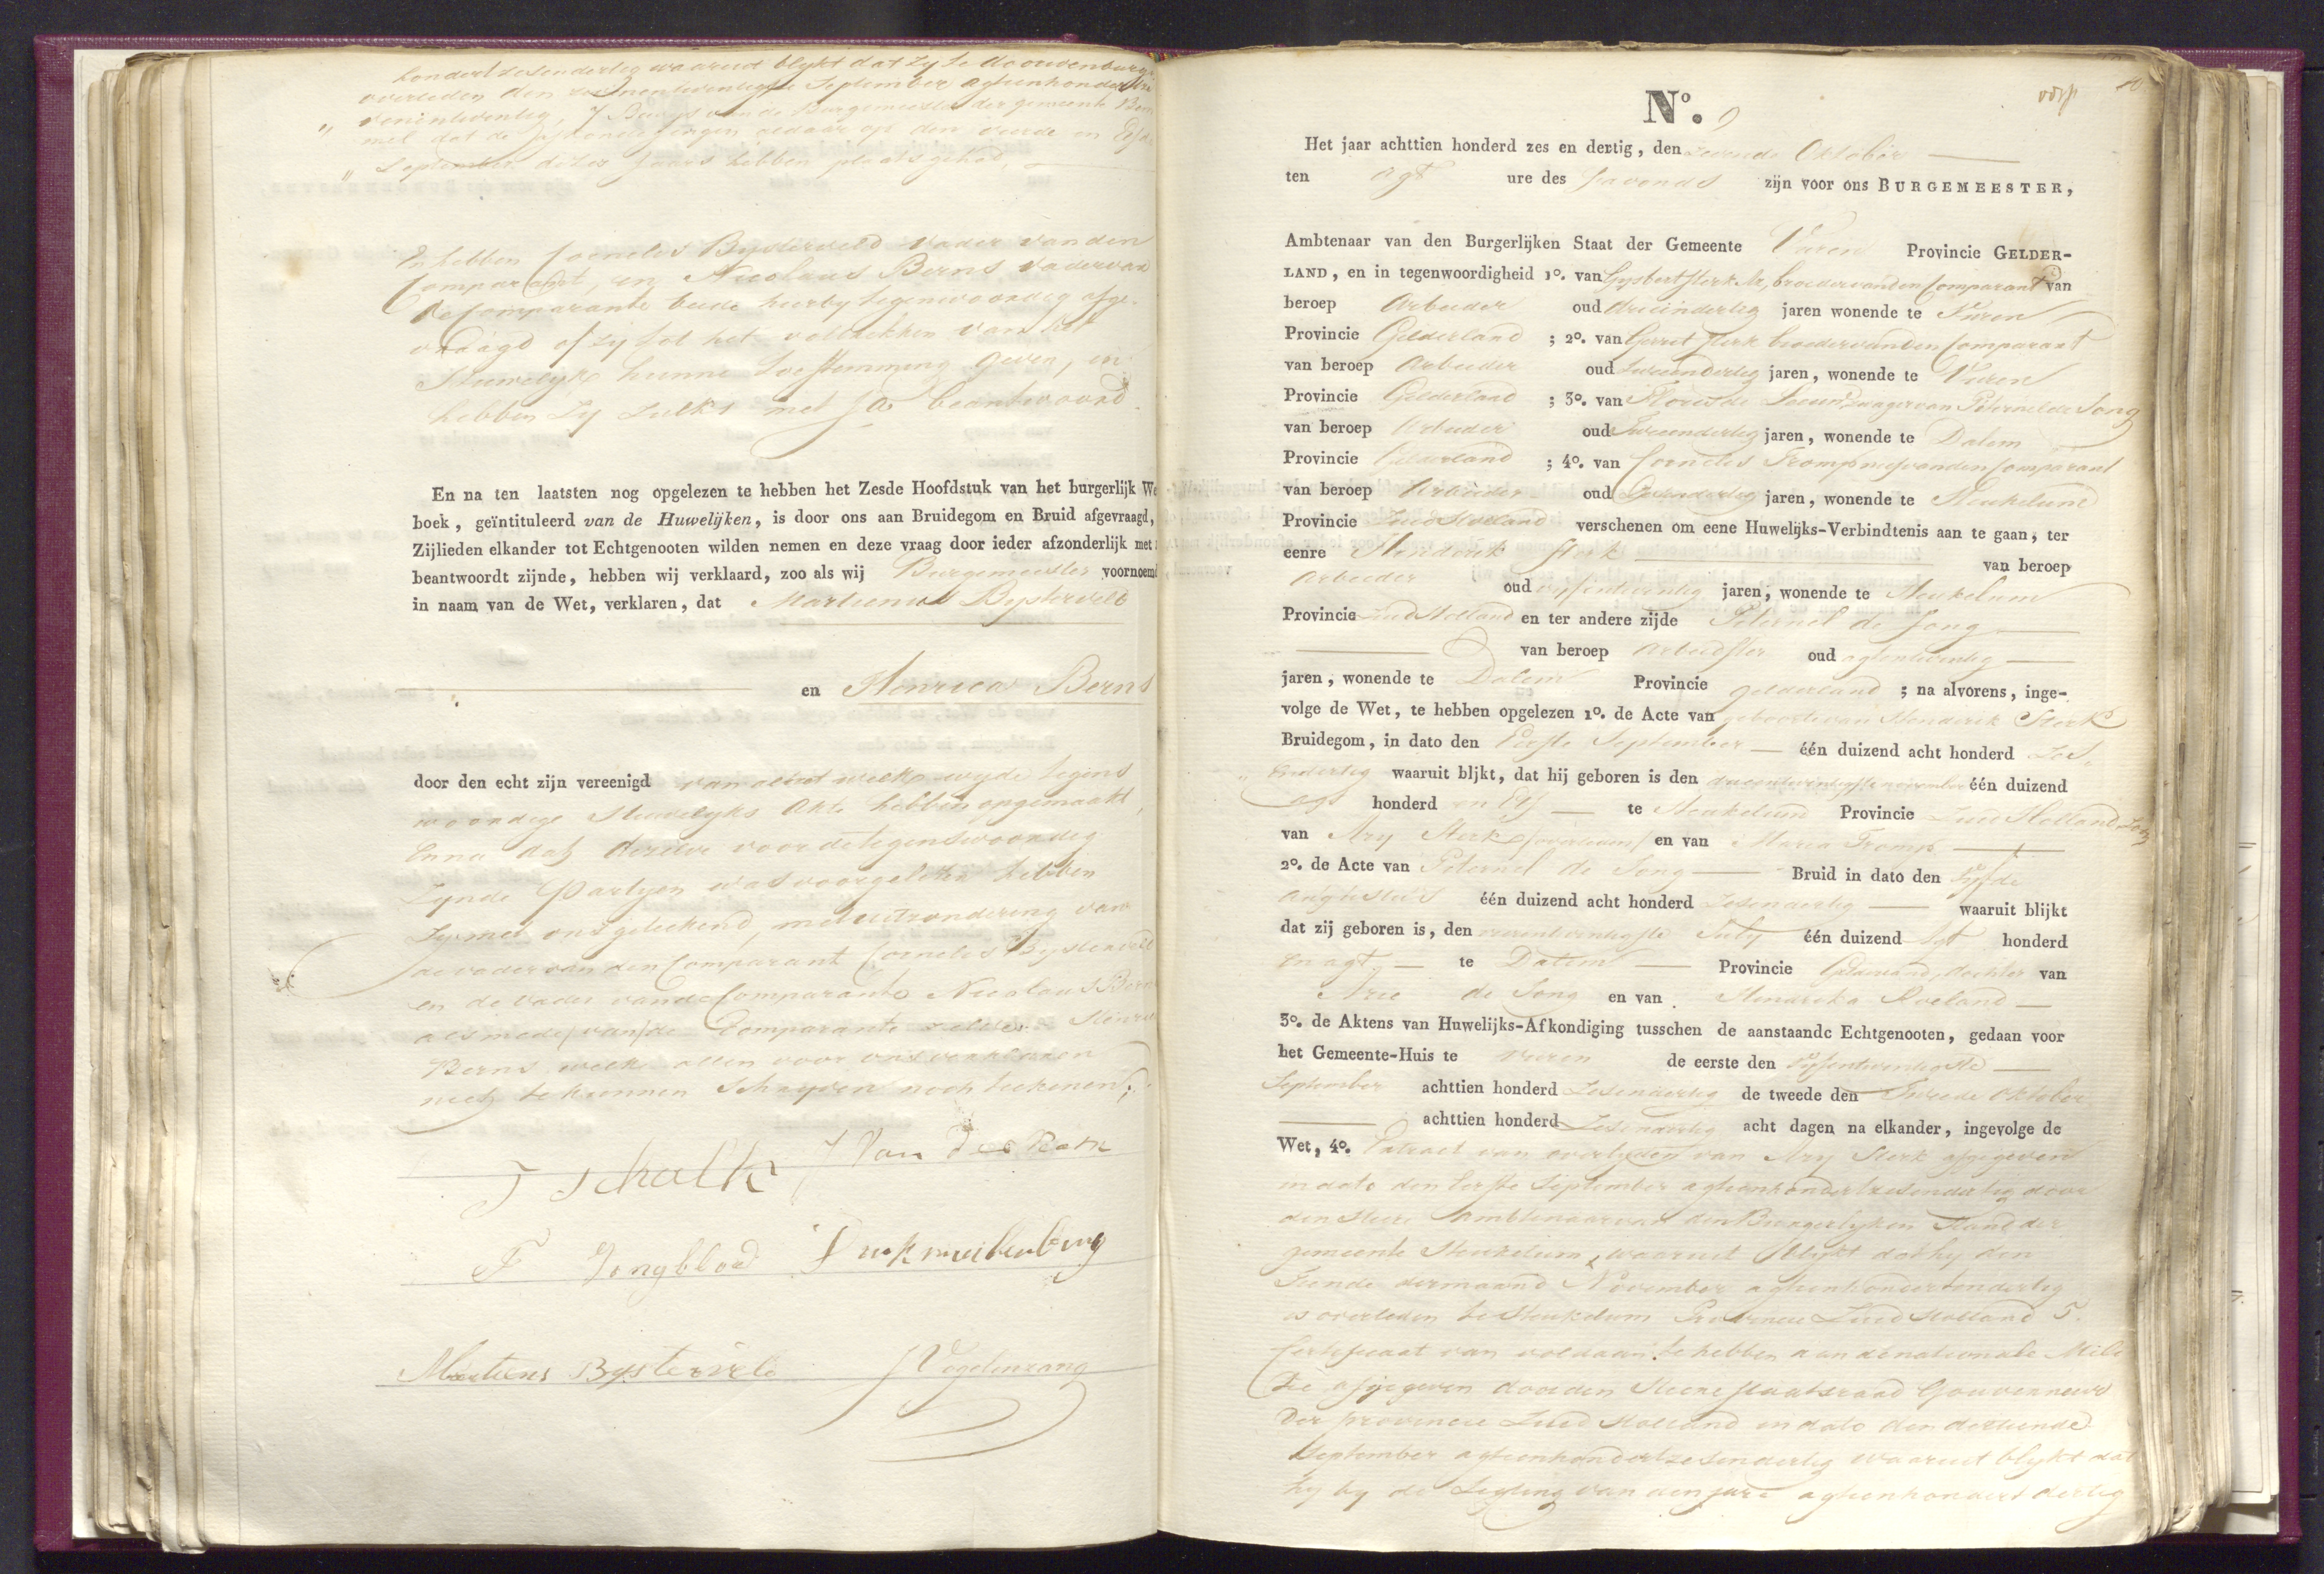 hondert zesendertig waaruit blykt dat zy te
overleden den September agtienhondert
venentwintig, 7 Bewys van de Burgemeester der gemeente
mel dat de aldaar op den vierde en Elfde
September dezer Jaars hebben plaats gehad,
En hebben Cornelis Bysterveld vader van den
Comparant, en Nicolaas Berns vader van
de Comparante beide hierby tegenwoordig afge-
vraagd of zy tot het voltrekken van het
Huwelyk hunne toestemming geven, en
hebben zy zulks met Ja beantwoord
En na ten laatsten nog opgelezen te hebben het Zesde Hoofdstuk van het burgerlijk We
boek, geïntituleerd van de Huwelijken, is door ons aan Bruidegom en Bruid afgevraagd,
Zijlieden elkander tot Echtgenooten wilden nemen en deze vraag door ieder afzonderlijk met
beantwoordt zijnde, hebben wij verklaard, zoo als wij Burgemeester voornoemd
in naam van de Wet, verklaren, dat Martinus Bysterveld
en Henrica Berns
door den echt zijn vereenigd van al het welke wyde tegens
woordige Huwelyks Akte hebben opgemaakt,
Enna dat dezelve voor de tegenswoordig
Zynde Partyen was voorgelezen hebben
Zy met ons geteekend, met uitzondering van
de vader van den Comparant Cornelis Bysterveld
en de vader van de Comparante Nicolaus Berns
alsmede van de Comparante zelve Henrica
Berns welke allen voor ons verklaren
niet te kunnen Schryven noch teekenen;
J Schalk J Van
F Jongbloed
Martinus Bysterveld J Vogelenzang
No. 9
10
Het jaar achttien honderd zes en dertig, den zevende Oktober
ten agt ure des savonds zijn voor ons BURGEMEESTER,
Ambtenaar van den Burgerlijken Staat der Gemeente Vuren Provincie GELDER-
LAND, en in tegenwoordigheid 1o. van Gysbert Sterk broeder van den Comparant van
beroep Arbeider oud drieëndertig jaren wonende te Vuren
Provincie Gelderland ; 2o. van Gerret Sterk broeder van den Comparant
van beroep Arbeider oud tweeendertig jaren, wonende te Vuren
Provincie Gelderland ; 3o. van Floris de Leeuw Zwager van Peternel de Jong
van beroep Arbeider oud Tweeendertig jaren, wonende te Dalem
Provincie Gelderland ; 4o. van Cornelis Tromp neef van den Comparant
van beroep Arbeider oud jaren, wonende te Heukelum
Provincie Zuid Holland verschenen om eene Huwelijks-Verbindtenis aan te gaan, ter
eenre Hendrik Sterk van beroep
Arbeider oud vyfentwintig jaren, wonende te Heukelum
Provincie Zuid Holland en ter andere zijde Peternel de Jong
van beroep Arbeidster oud agtentwintig
jaren, wonende te Dalem Provincie Gelderland ; na alvorens, inge-
volge de Wet, te hebben opgelezen 1o. de Acte van geboorte van Henderik Sterk
Bruidegom, in dato den Eerste September één duizend acht honderd Zes
Endertig waaruit bljkt, dat hij geboren is den drieentwintigste november één duizend
agt honderd en Elf te Heukelum Provincie Zuid Holland Zoon
van Ary Sterk (overleden) en van Maria Tromp
2o. de Acte van Peternel de Jong Bruid in dato den Vyfde
Augustus één duizend acht honderd Zesendertig waaruit blijkt
dat zij geboren is, den July één duizend Agt honderd
en agt te Dalem Provincie Gelderland, dochter van
Arie de Jong en van Hendrika Roeland
3o. de Aktens van Huwelijks-Afkondiging tusschen de aanstaande Echtgenooten, gedaan voor
het Gemeente-Huis te Vuren de eerste den Vyfentwintigste
September achttien honderd Zesendertig de tweede den Tweede Oktober
achttien honderd Zesendertig acht dagen na elkander, ingevolge de
Wet, 4o. Extract van overlyden van Ary Sterk afgegeven
in dato den Eerste September agtienhondertzesendertig door
den Heere Ambtenaar van den Burgerlyken Stand der
gemeente Heukelum, waaruit blykt dat hy den
Tiende dermaand November agtienhondertendertig
is overleden te Heukelum Provincie Zuid Holland 5.
Certificaat van voldaan te hebben aan de nationale Mili
tie afgegeven door den Heere Staatsraad Gouverneur
Der provincie Zuid Holland in dato den dertiende
September agtienhondertzesendertig waaruit blykt dat
hy by de Ligting van den jare agtienhondert dertig